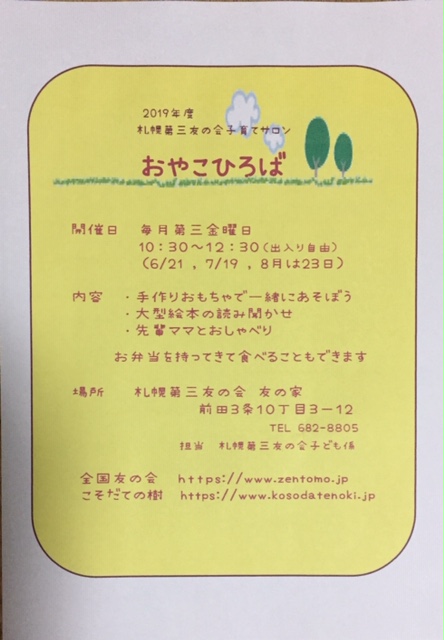 2019年度
札幌第三友の会子育てサロン
おやこひろば
開催日 毎月第三金曜日
10：30～12：30（出入り自由）
（6/21 , 7/19 , 8月は23日）
内容 ・手作りおもちゃで一緒にあそぼう
・大型絵本の読み聞かせ
・先輩ママとおしゃべり
お弁当を持ってきて食べることもできます
場所 札幌第三友の会 友の家
前田3条10丁目3－12
TEL 682-8805
担当 札幌第三友の会子ども係
全国友の会 https://www.zentomo.jp
こそだての樹 https://www.kosodatenoki.jp